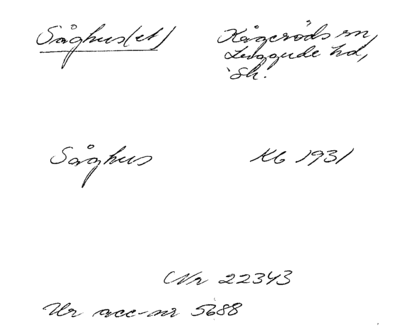 Såghus(et)
Kågeröds sn,
Luggude hd,
Sk.
Såghus
Kb 1931
Nr 22343
Ur acc-nr 5688